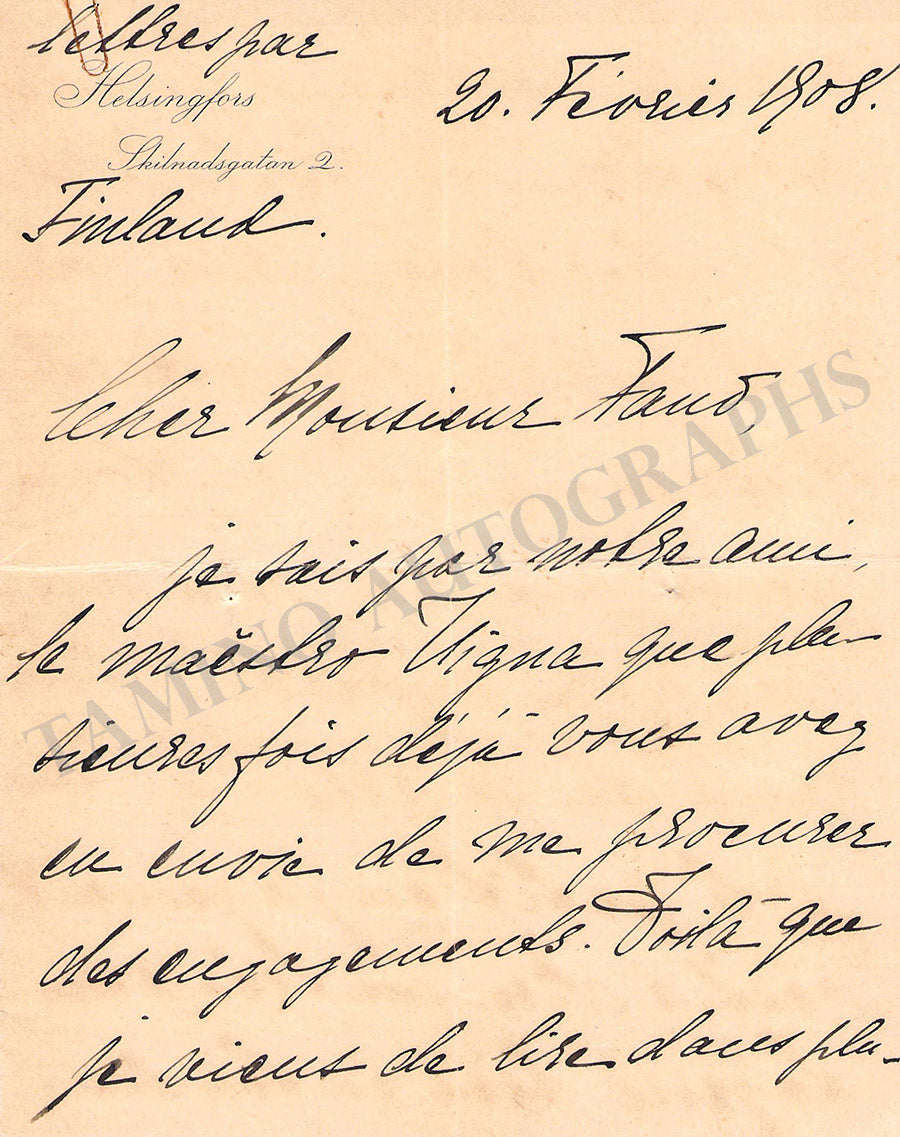 lettres par
Helsingfors
20. Février 1908.
Skilnadsgatan 2.
Finland.
Cher Monsieur Fano,
je sais par notre ami,
le maëstro Vigna que plu-
sieures fois déjà vous avez
eu envie de me procurer
des engagements. Voilà que
je viens de lire dans plu-
TAMINO AUTOGRAPHS